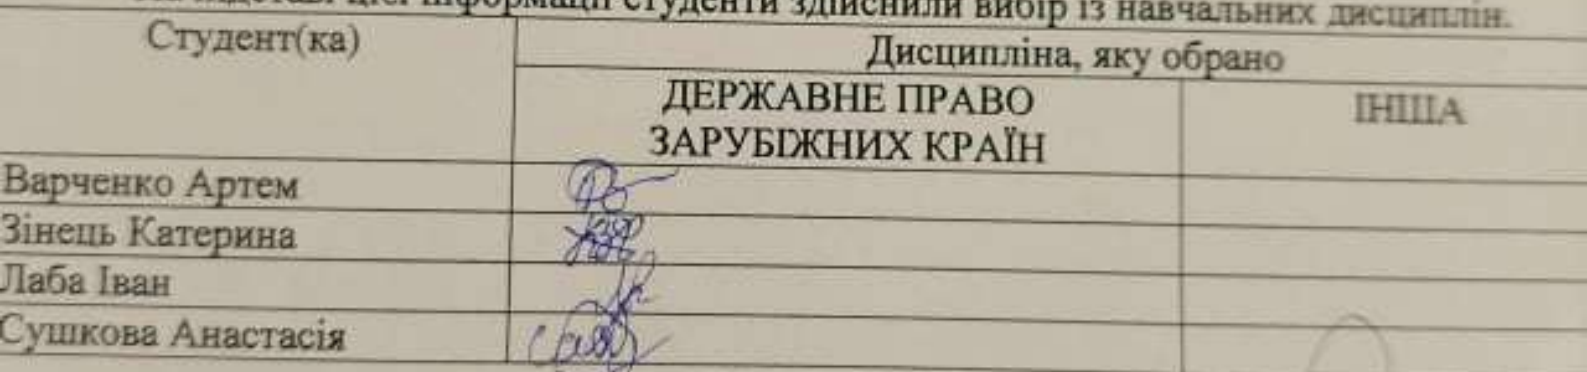 цієї інформації студенти здійснили вибір із навчальних дисциплін.
Студент(ка)
Дисципліна, яку обрано
ДЕРЖАВНЕ ПРАВО
ЗАРУБІЖНИХ КРАЇН
ІНША
Варченко Артем
Зінець Катерина
Лаба Іван
Сушкова Анастасія